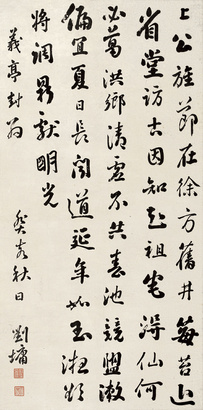 上公旌節在徐方舊井莓苔近
省堂訪古因知彭祖宅得仙何
必葛洪鄉清虛不共春池競盥漱
偏宜夏日長聞道延年如玉液欲
將調鼎獻明光
義亭封翁
癸亥秋日 劉墉